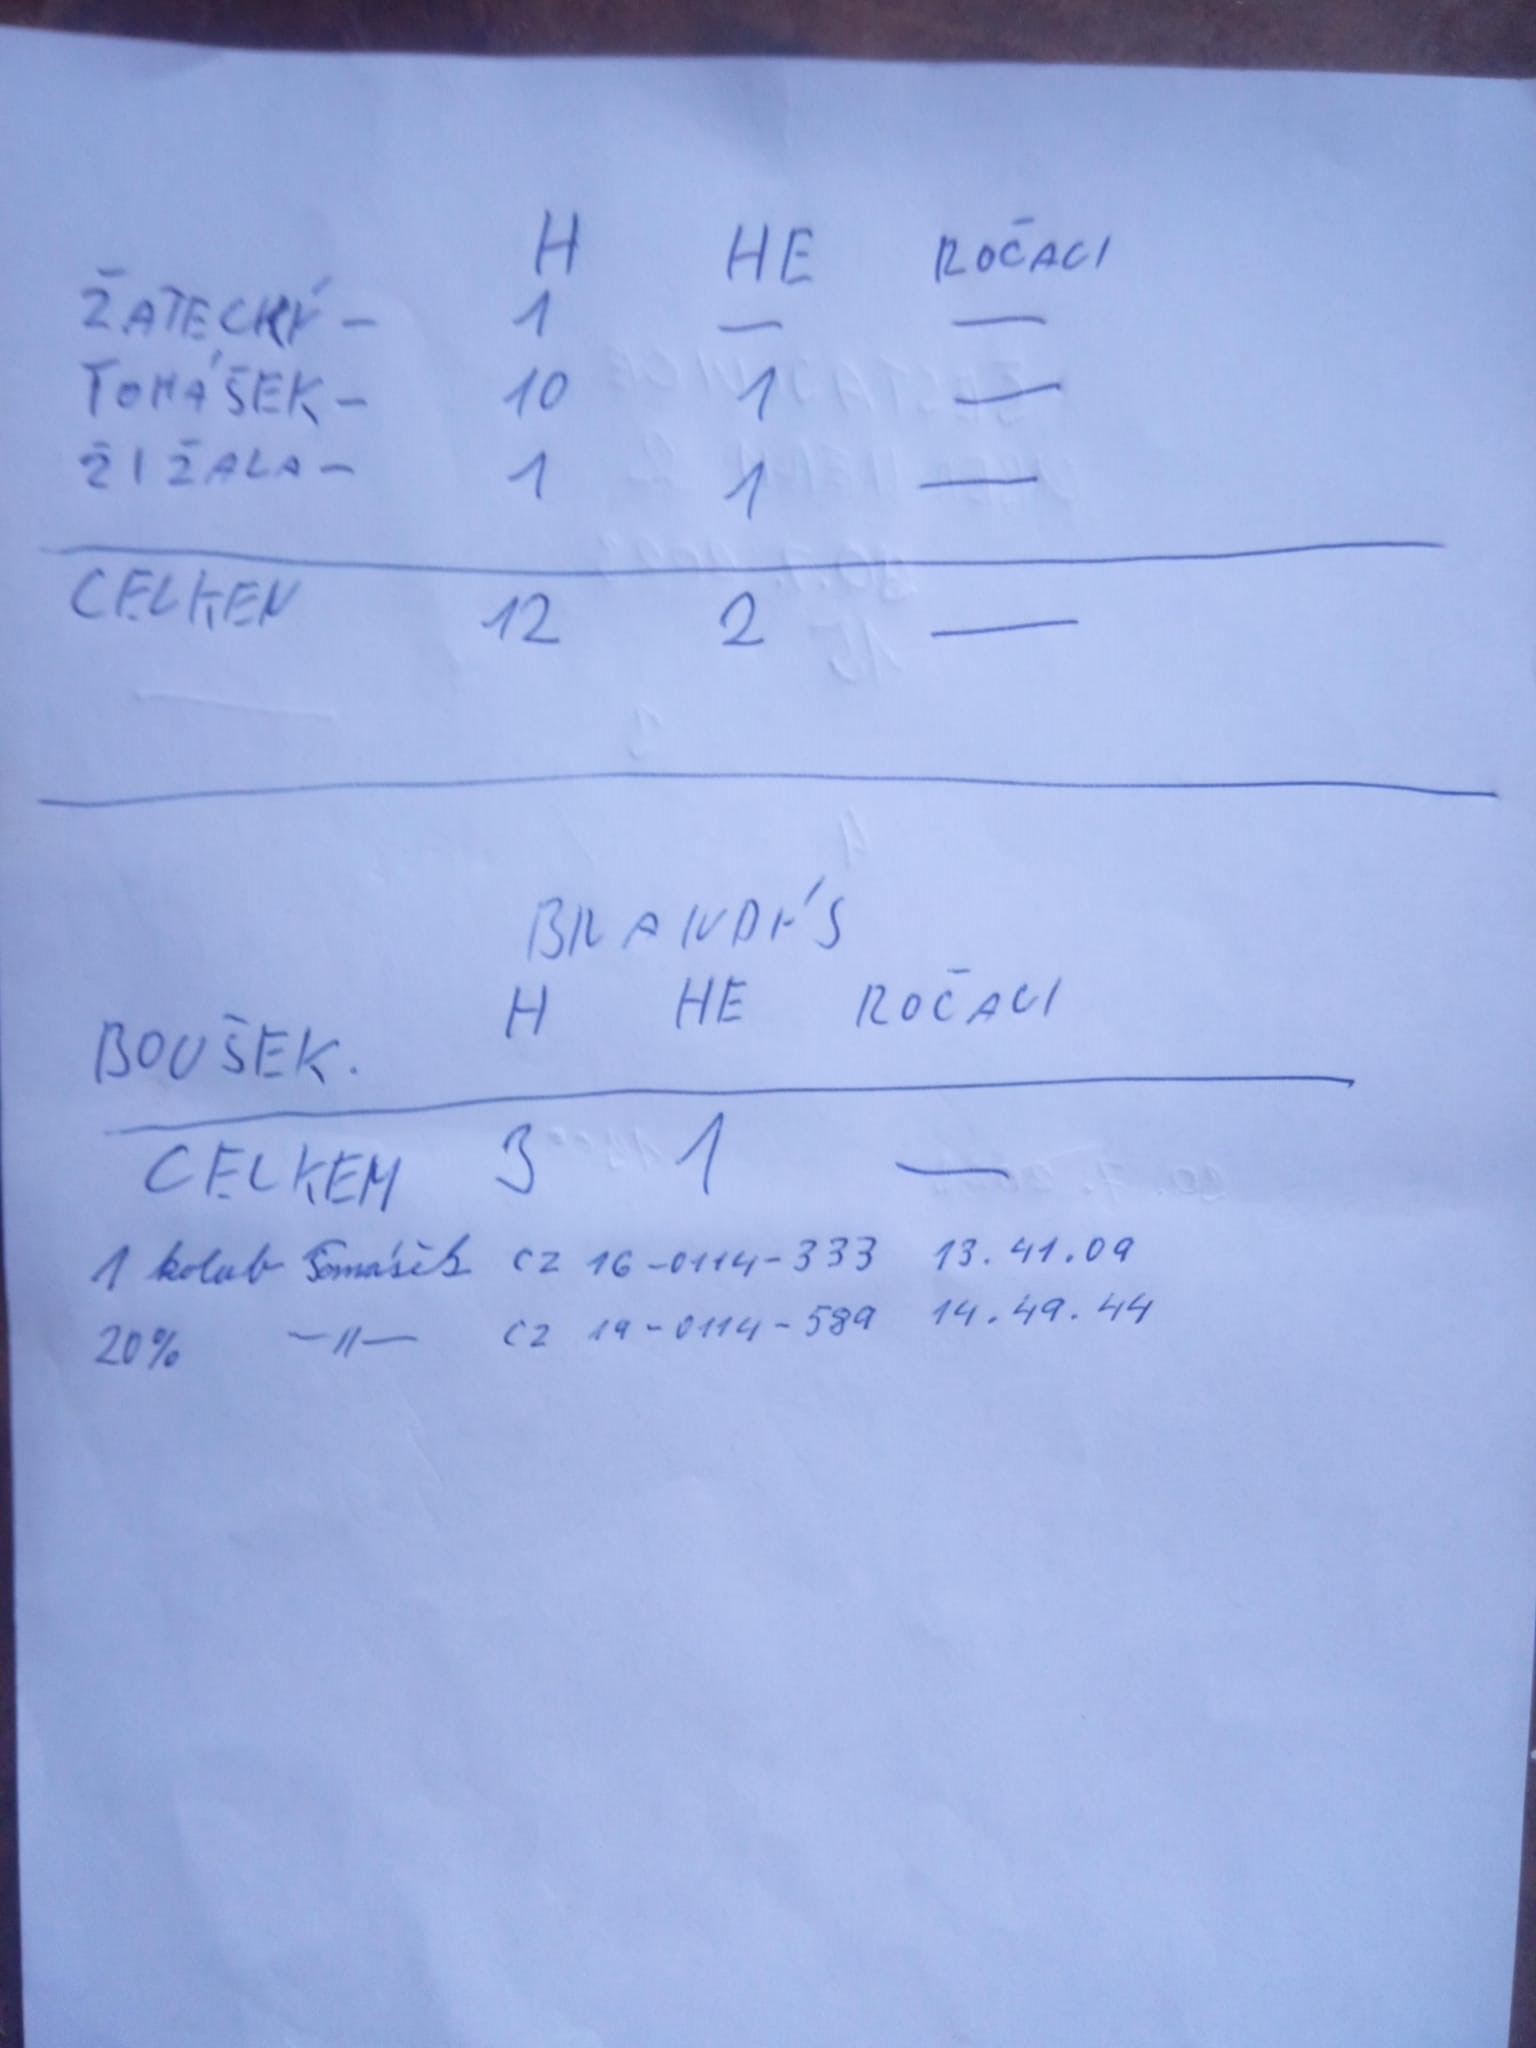 H HE ROČACI
ŽATECKÝ - 1 — —
TOMÁŠEK - 10 1 —
ŽIŽALA - 1 1 —
CELKEM 12 2 —
BRANDÝS
H HE ROČACI
BOUŠEK.
CELKEM 3 1 —
1 holub Tomášek CZ 16-0114-333 13.41.09
20% —||— CZ 19-0114-589 14.49.44